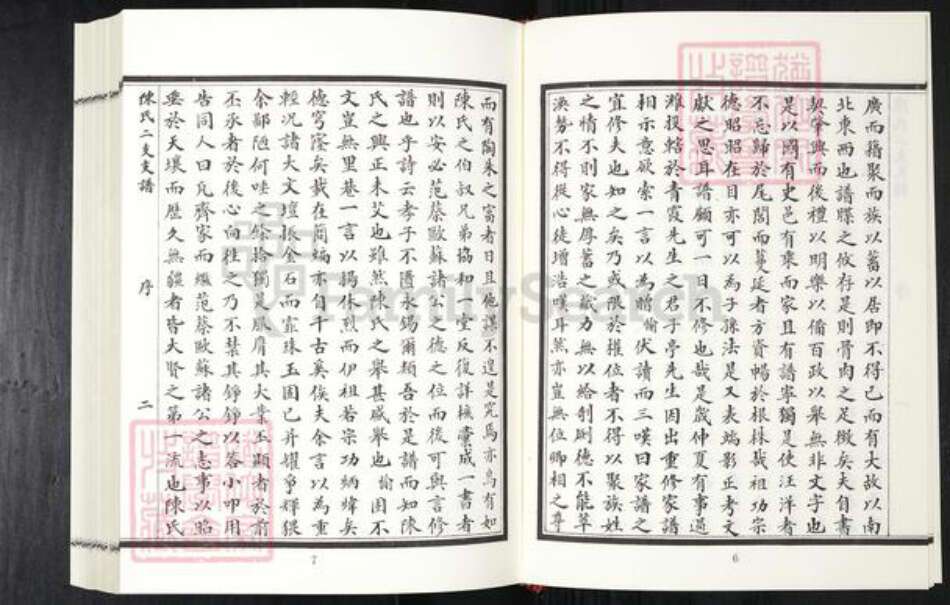 廣而籍聚而族以蓄以居即不得已而有大故以南
北東西也譜牒之攸存是則骨肉之足徵矣夫自書
契肇興而後禮以明樂以備百政以舉無非文字也
是以國有史邑有乘而家且有譜寧獨是使汪洋者
不忘歸於尾閭而蔓延者方資暢於根株哉祖功宗
德昭昭在目亦可以為子孫法是又表端影正考文
獻之思耳譜顧可一日不修也哉是歲仲夏有事過
濰投轄於青霞先生之君子亭先生因出重修家譜
相示意欲索一言以為贈愉伏讀而三嘆曰家譜之
宜修夫也知之矣乃或限於權位者不得以聚族姓
之情不則家無厚蓄之蔵力無以給剞劂德不能萃
渙勢不得從心徒增浩嘆耳然亦豈無位卿相之尊
6
而有陶朱之富者日且他謀不遑是究焉亦烏有如
陳氏之伯叔兄弟協和一堂反復詳核彙成一書者
則以安必范蔡歐蘇諸公之德之位而後可與言修
譜也乎詩云孝子不匱永錫爾類吾於是譜而知陳
氏之興正未艾也雖然陳氏之舉甚盛舉也愉固不
文豈無里巷一言以揚休烈而伊祖若宗功炳煒矣
德穹窿矣載在簡端亦自千古奚俟夫余言以為重
輕況諸大文壇振金石而霏珠玉固已并耀爭輝猥
余鄙陋何哇之餘拾獨是服膺其大業丕顯者於前
丕承者於後心向往之乃不禁其錚錚以答小叩用
告同人曰凡齊家而繼范蔡歐蘇諸公之志事以昭
垂於天壤而歷久無疆者皆大賢之第一流也陳氏
陳氏二支支譜
序
二
7
FamilySearch